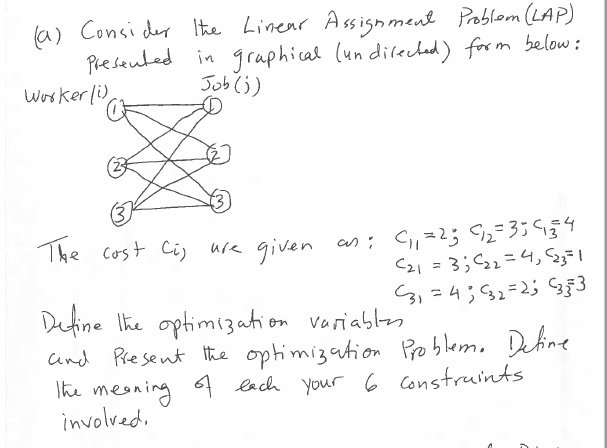 (a) Consider the Linear Assignment Problem (LAP)
Presented in graphical (undirected) form below:
Worker(i) Job(j)
1 1
2 2
3 3
The cost Cij are given as: C11 = 2; C12 = 3; C13 = 4
C21 = 3; C22 = 4, C23 = 1
C31 = 4; C32 = 2; C33 = 3
Define the optimization variables
and Present the optimization Problem. Define
the meaning of each your 6 constraints
involved.